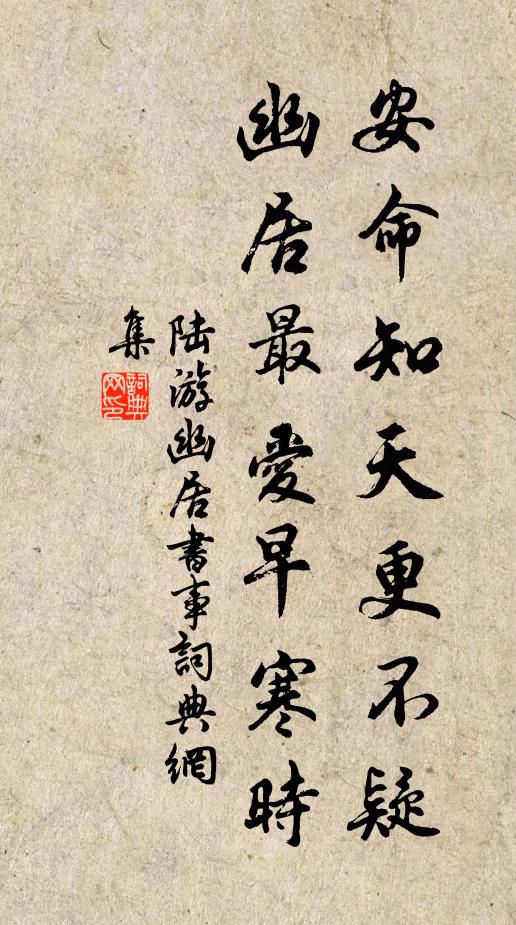 安命知天更不疑
幽居最愛早寒時
陸游幽居書事詞典網
集
詞典
网印